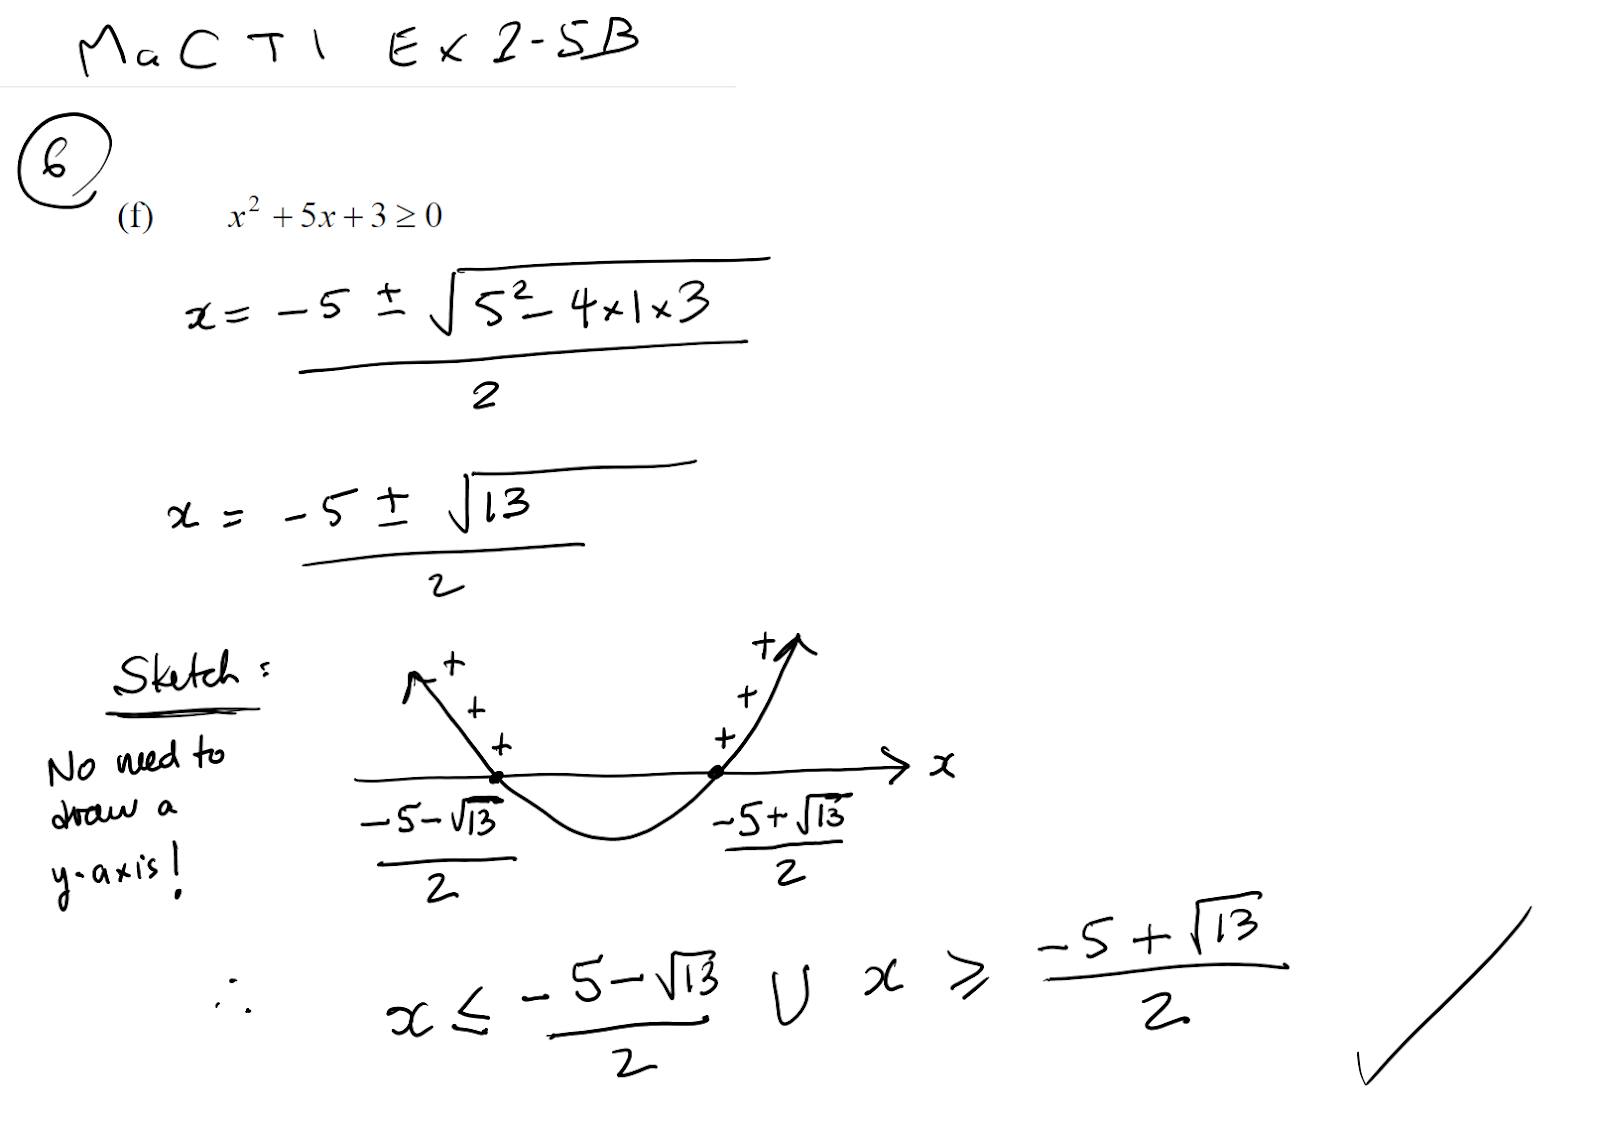 MaCTI Ex 2-5B
6
(f) x² + 5x + 3 ≥ 0
x = (-5 ± √(5² - 4×1×3))/2
x = (-5 ± √13)/2
Sketch:
No need to
draw a
y-axis!
+ + + + + +
x
(-5-√13)/2 (-5+√13)/2
∴ x ≤ (-5-√13)/2 ∪ x ≥ (-5+√13)/2 ✓